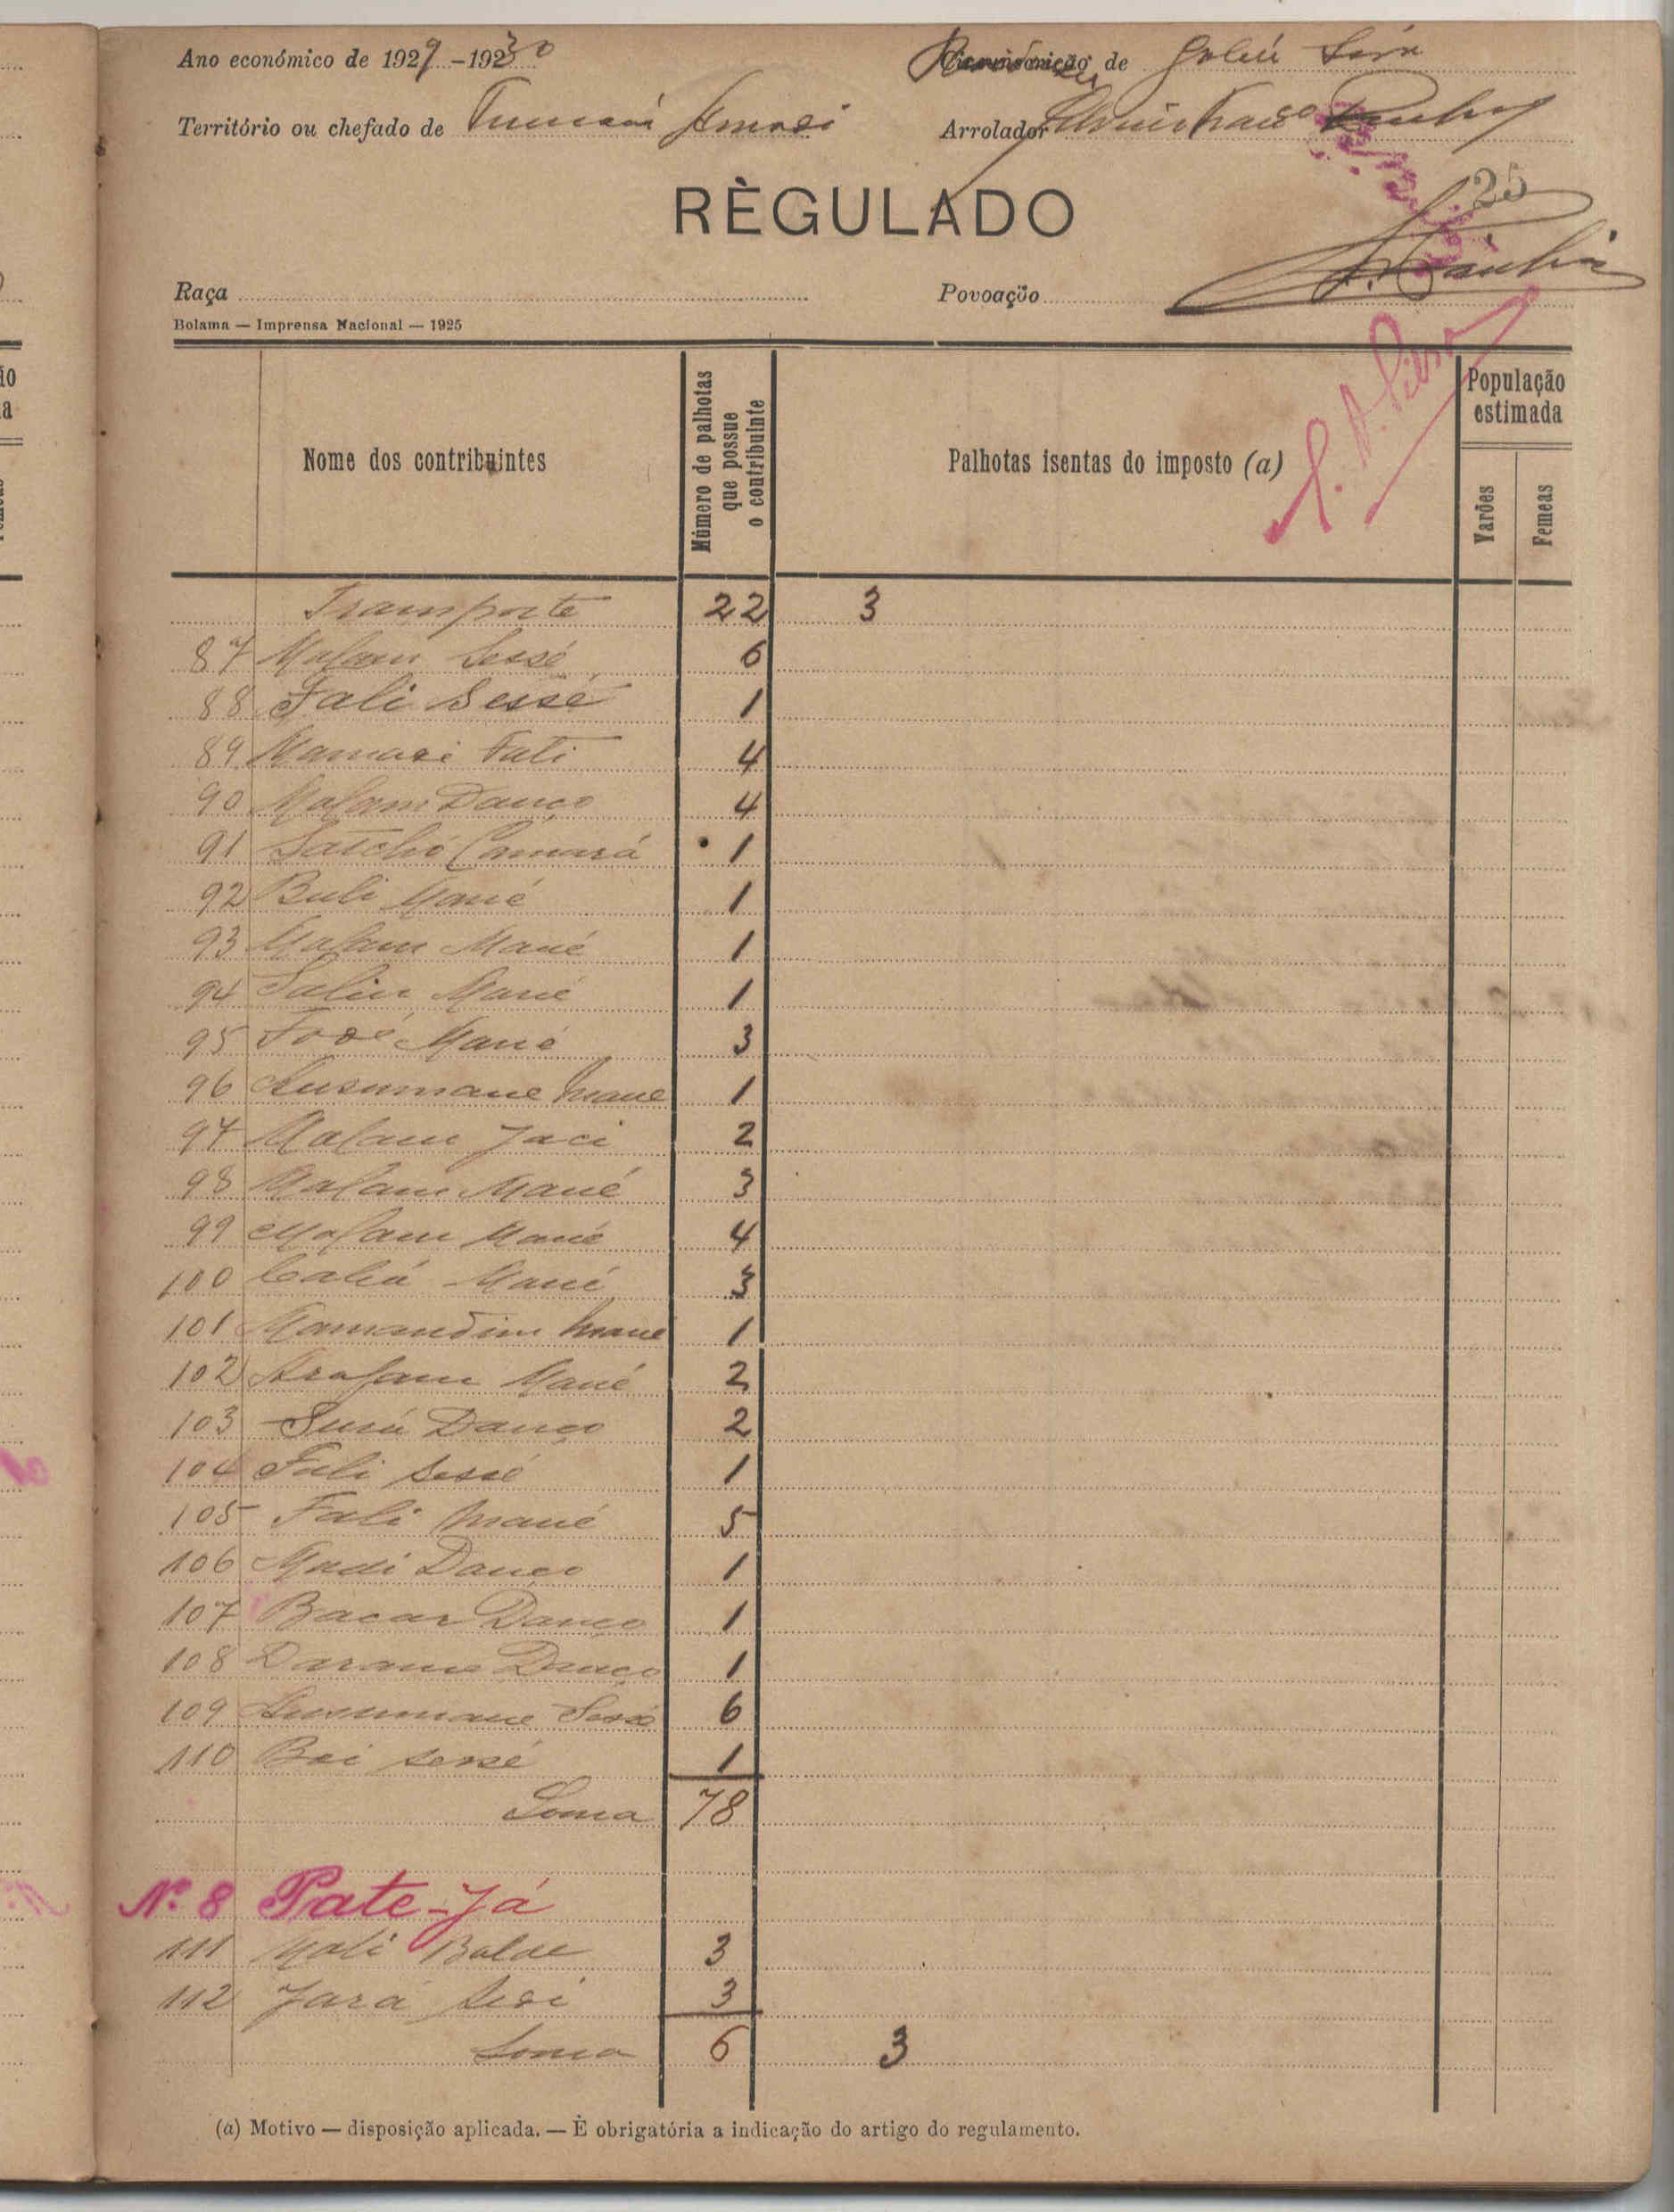 Ano económico de 1929-1930 de
Território ou chefado de Arrolador
25
RÈGULADO
Raça Povoação
Bolama — Imprensa Nacional — 1925
Nome dos contribuintes
Número de palhotas que possue o contribuinte
Palhotas isentas do imposto (a)
População estimada
Varões
Femeas
Transporte 22 3
87 Malam Sessé 6
88 Fali Sessé 1
89 Mamadi Fati 4
90 Malam Danço 4
91 Satchó Camará 1
92 Buli Mané 1
93 Malam Mané 1
94 Mané 1
95 Mané 3
96 Mané 1
97 Malam Jaci 2
98 Malam Mané 3
99 Malam Mané 4
100 Mané 3
101 Mamandim Mané 1
102 Arafam Mané 2
103 Danço 2
104 Fali Sessé 1
105 Fali Mané 5
106 Danço 1
107 Bacar Danço 1
108 Danço 1
109 Sessé 6
110 Sessé 1
Soma 78
Nº 8 Pate-Já
111 Mali Balde 3
112 Jará 3
Soma 6 3
(a) Motivo — disposição aplicada. — È obrigatória a indicação do artigo do regulamento.